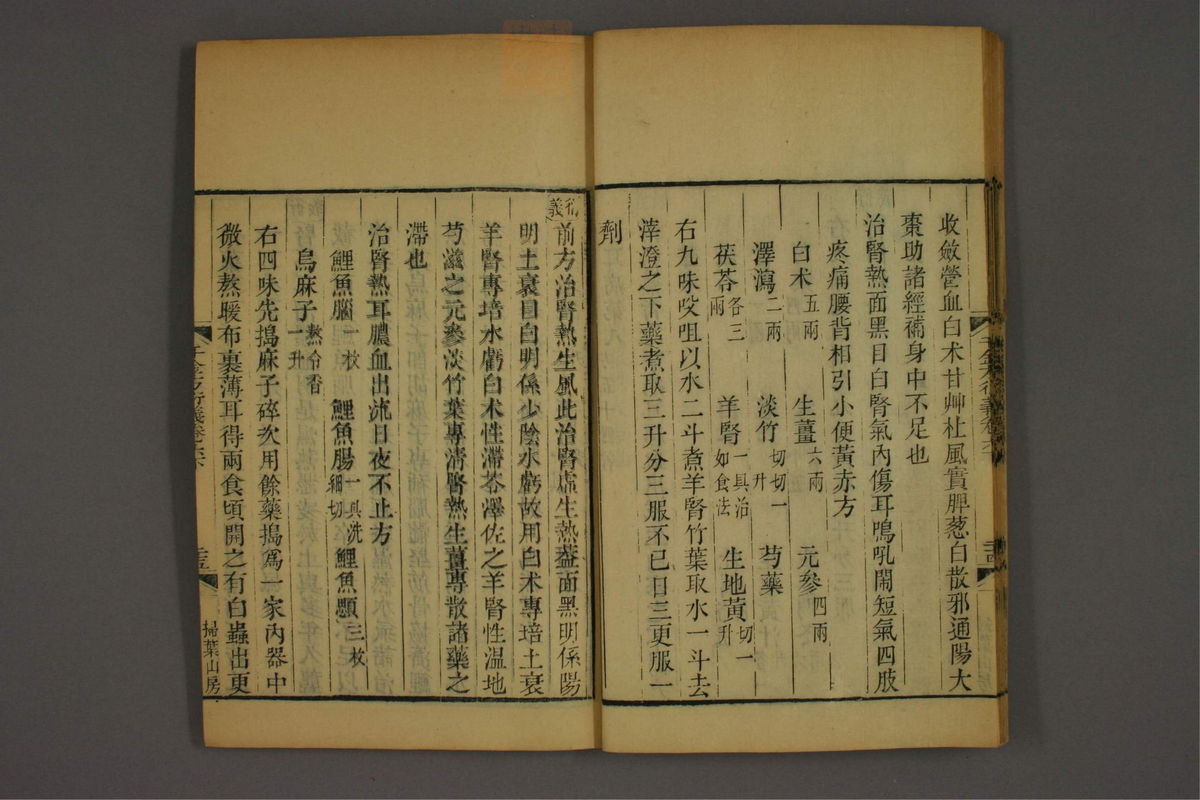 收斂營血白术甘艸杜風實脾葱白散邪通陽大
棗助諸經補身中不足也
治腎熱面黑目白腎氣內傷耳鳴吼鬧短氣四肢
疼痛腰背相引小便黃赤方
白术五兩 生薑六兩 元參四兩
澤瀉二兩 淡竹切切一升 芍藥
茯苓各三兩 羊腎一具治如食法 生地黃切一升
右九味㕮咀以水二斗煮羊腎竹葉取水一斗去
滓澄之下藥煮取三升分三服不已日三更服一
劑
衍義 前方治腎熱生風此治腎虛生熱葢面黑明係陽
明土衰目白明係少陰水虧故用白术專培土衰
羊腎專培水虧白术性滯苓澤佐之羊腎性温地
芍滋之元參淡竹葉專清腎熱生薑專散諸藥之
滯也
治腎熱耳膿血出流日夜不止方
鯉魚腦一枚 鯉魚腸一具洗細切 鯉魚䰄三枚
烏麻子熬令香一升
右四味先搗麻子碎次用餘藥搗爲一家內器中
微火熬暖布裹薄耳得兩食頃開之有白蟲出更
千金方衍義卷之六
掃葉山房